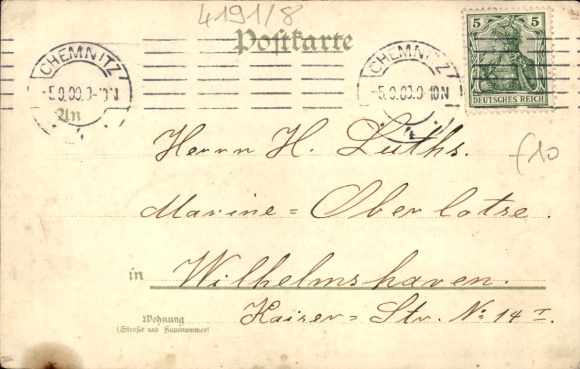 4191/8
Postkarte
5 5
DEUTSCHES REICH
CHEMNITZ
-5.9.09.9-10N
CHEMNITZ
-5.9.09.9-10N
An
Herrn H. Luths.
f10
Marine=Oberlotse.
in Wilhelmshaven.
Wohnung
(Straße und Hausnummer)
Kaiser=Str. No 14 I.